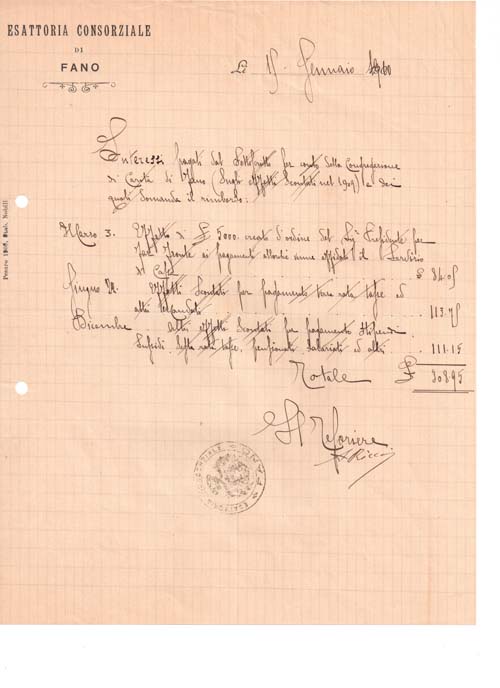 ESATTORIA CONSORZIALE
DI
FANO
Li 15 Gennaio 1910
Interessi pagati dal Sottoscritto per conto della Congregazione
di Carità di Fano (Sugli effetti Scontati nel 1909) e dei
quali domanda il rimborso:
Marzo 3. Effetto di £ 5000 creato d'ordine del Sig Presidente per
far fronte ai pagamenti allorchè venne affidato il Servizio
di Cassa £ 84.05
Giugno Effetti Scontati per pagamento rata tasse ed
altri Mandati 113.75
Dicembre Altri effetti Scontati per pagamento Stipendi
Sussidi rata tasse, pensionati Salariati ed altri 111.15
Totale £ 308.95
Il Tesoriere
Ricci
Pesaro Stab. Nobili
ESATTORIA CONSORZIALE FANO